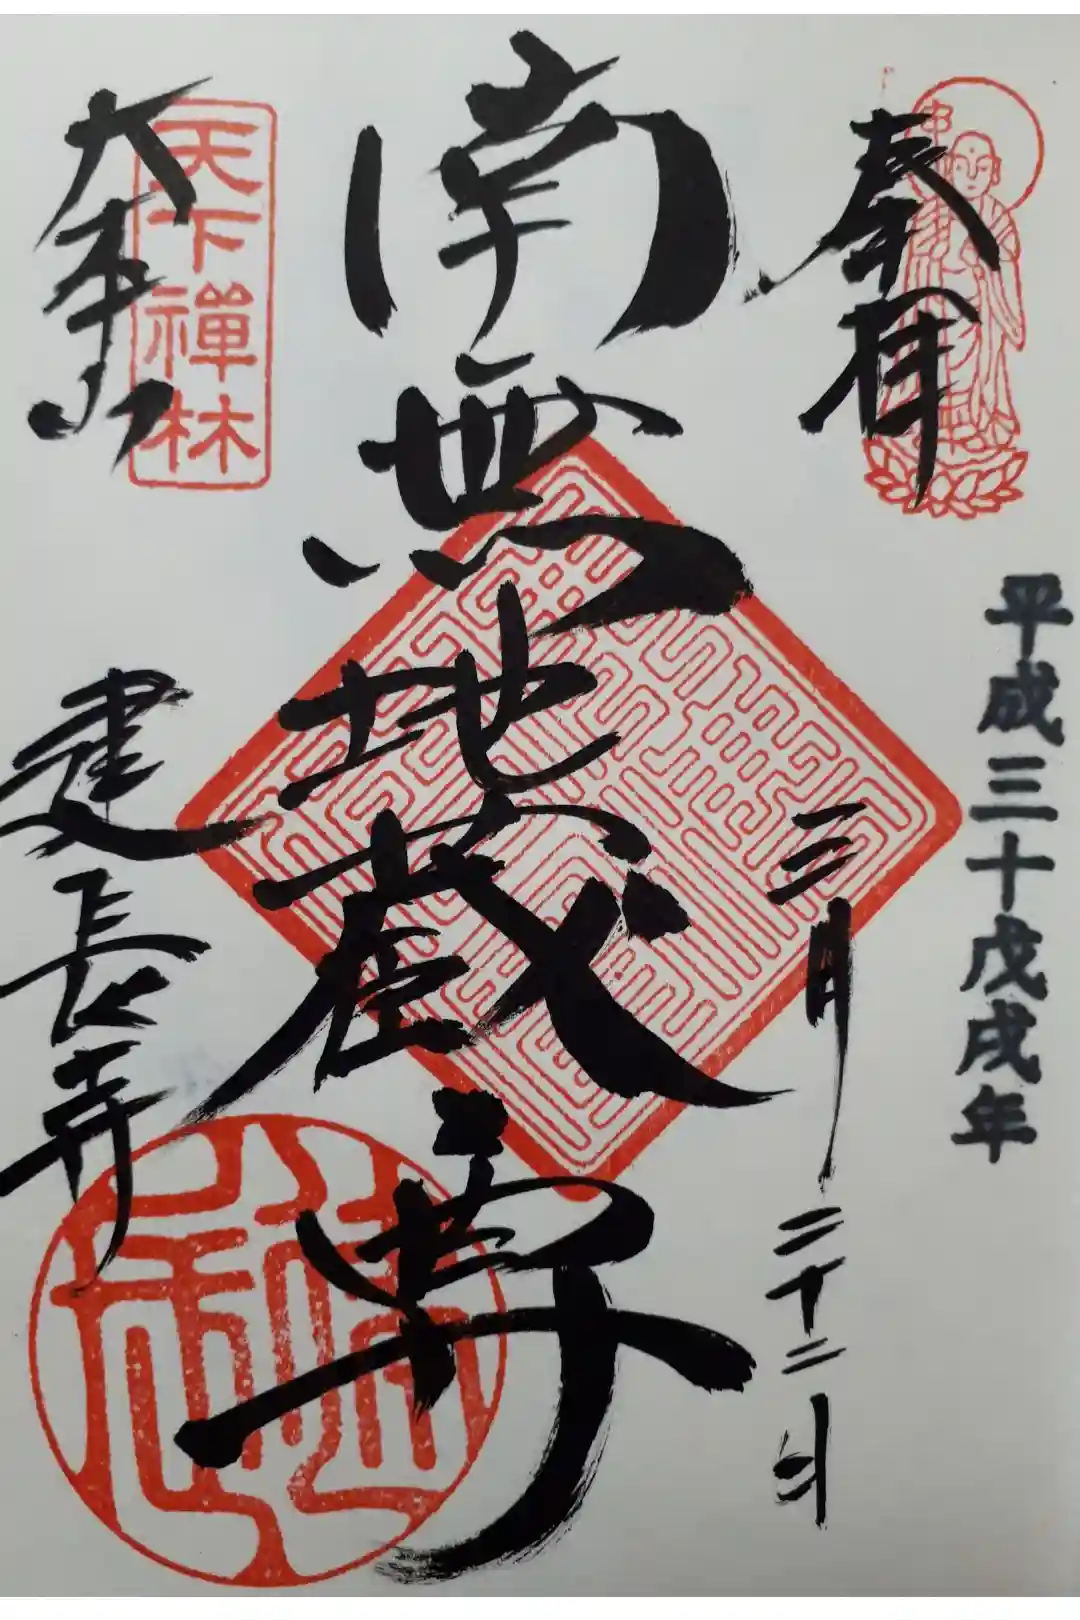 平成三十戊戌年
奉拝
三月二十二日
南無地蔵尊
天下禅林
大本山
建長寺